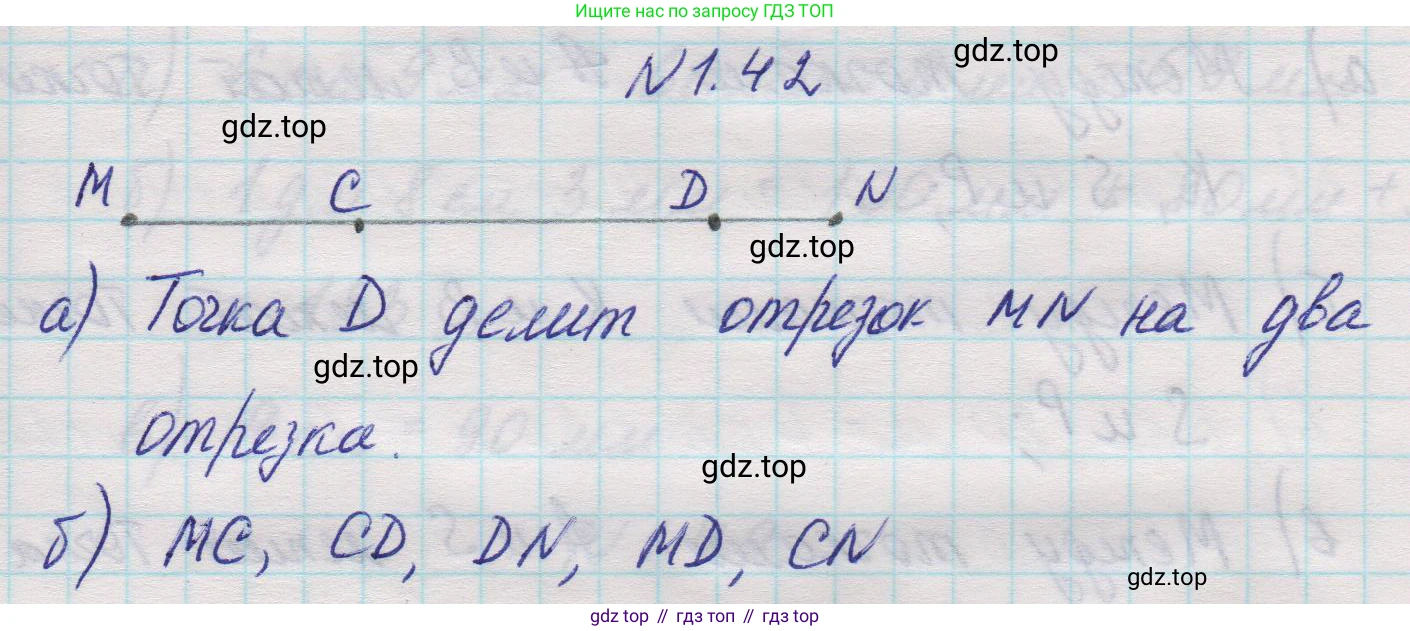 Ищите нас по запросу ГДЗ ТОП
N1.42
gdz.top
gdz.top
M C D N
gdz.top
а) Точка D делит отрезок MN на два
gdz.top
отрезка.
gdz.top
б) MC, CD, DN, MD, CN
gdz.top
gdz top // гдз топ // гдз top